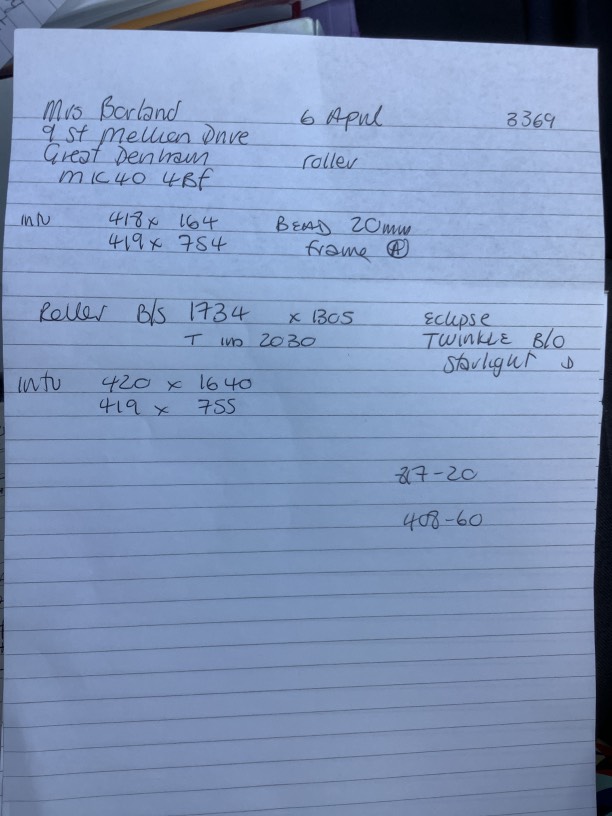 Mrs Borland 6 April 3369
9 St Mellion Drive
Great Denham roller
MK40 4BF
intu 418 x 164 BEAD 20mm
419 x 754 frame (A)
Roller B/S 1734 x 1305 Eclipse
T 2030 TWINKLE B/O
Starlight D
intu 420 x 1640
419 x 755
7-20
408-60